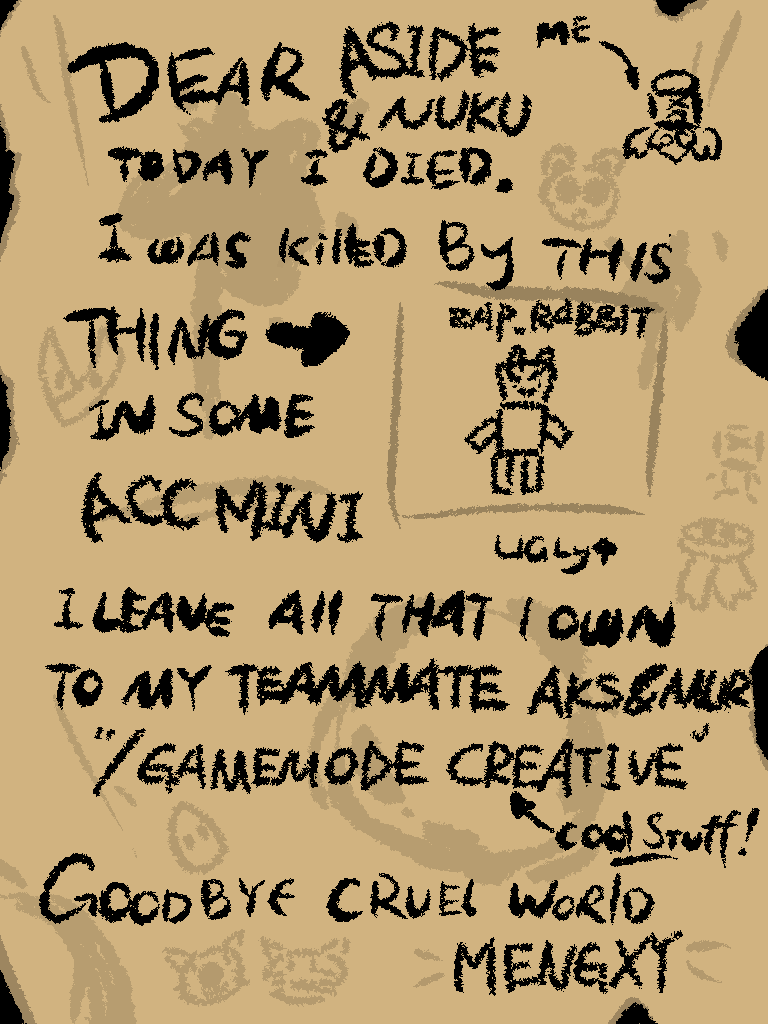 ME
DEAR ASIDE
& NUKU
TODAY I DIED.
I WAS KillED BY THIS
THING ➡
ZAP_RABBIT
IN SOME
ACC MINI
UGLy
I LEAVE All THAT I OWN
TO MY TEAMMATE AKS&MUR
"/GAMEMODE CREATIVE"
COOl STUFF!
GOODBYE CRUEL WORlD
MENGXY